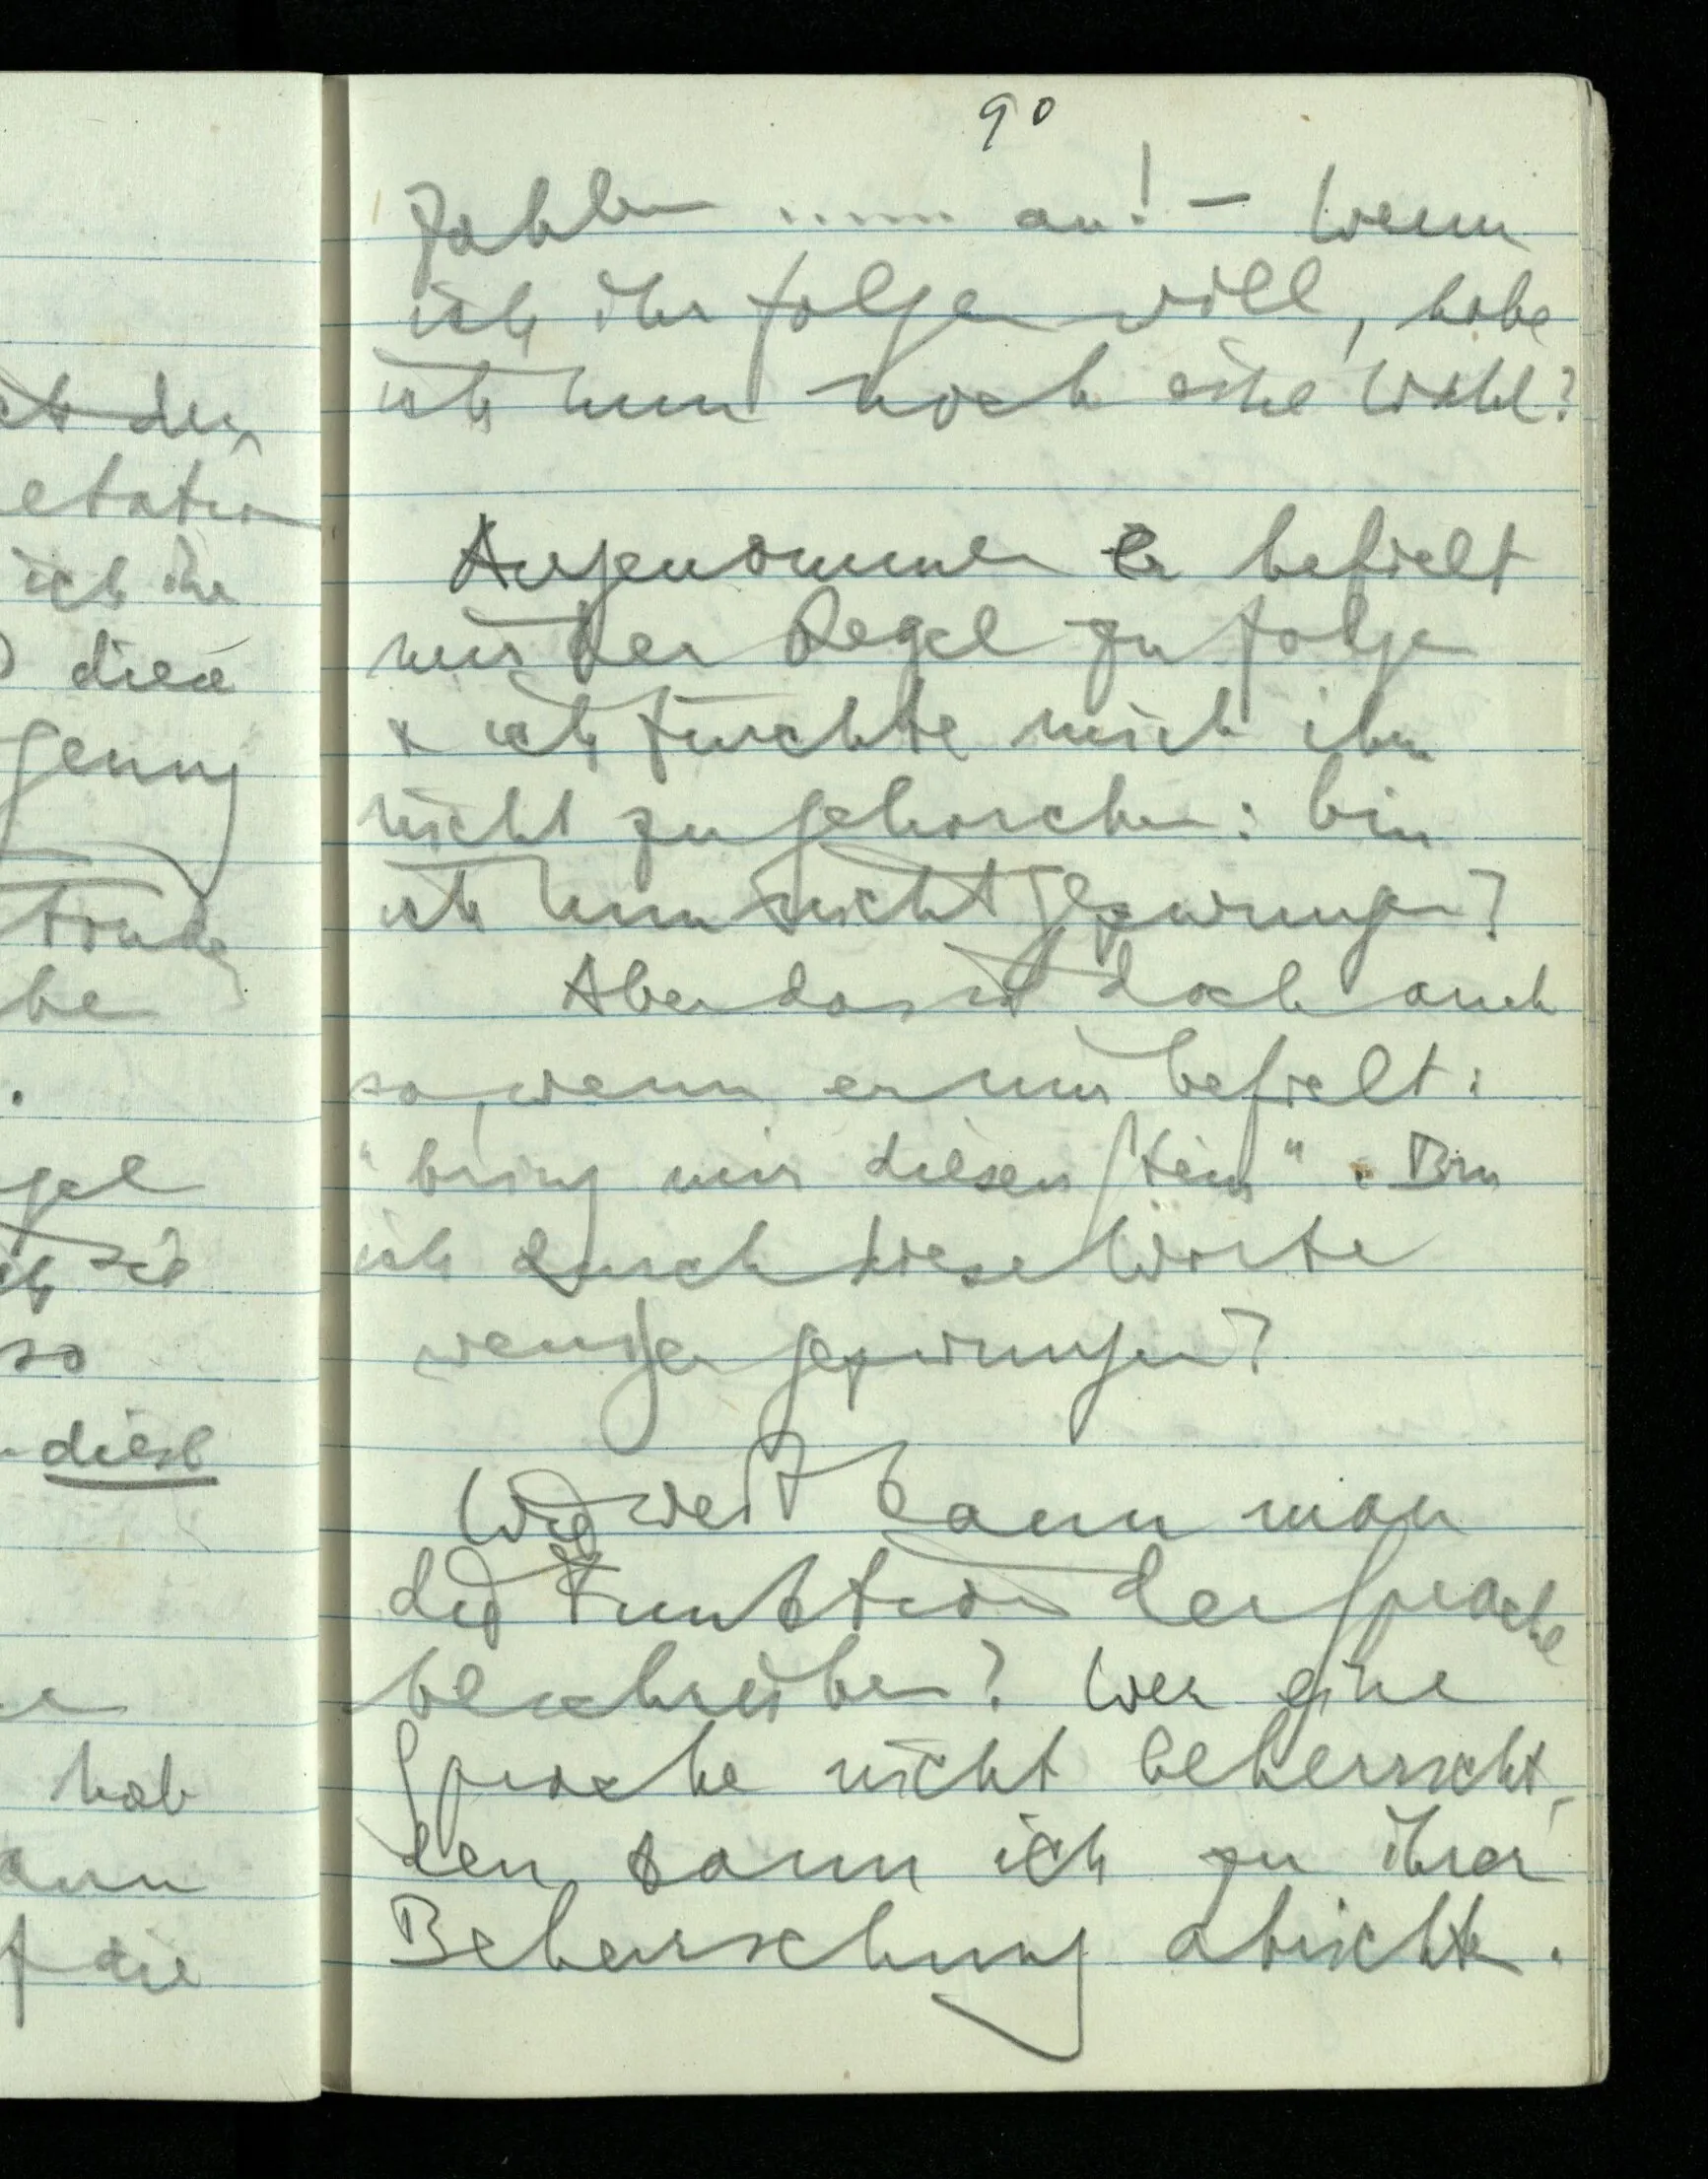 90
Zahlen ...... an! – Wenn
ich ihr folgen will, habe
ich nun noch eine Wahl?
Angenommen Er befielt
mir der Regel zu folgen
& ich fürchte mich ihm
nicht zu gehorchen: bin
ich nun nicht gezwungen?
Aber das ist doch auch
so, wenn er mir befielt:
"bring mir diesen Stein". Bin
ich durch diese Worte
weniger gezwungen?
Wie weit kann man
die Funktion der Sprache
beschreiben? Wer eine
Sprache nicht beherrscht,
den kann ich zu ihrer
Beherrschung abrichten.
ich ihr
diese
be
.
so
diese
hab
die